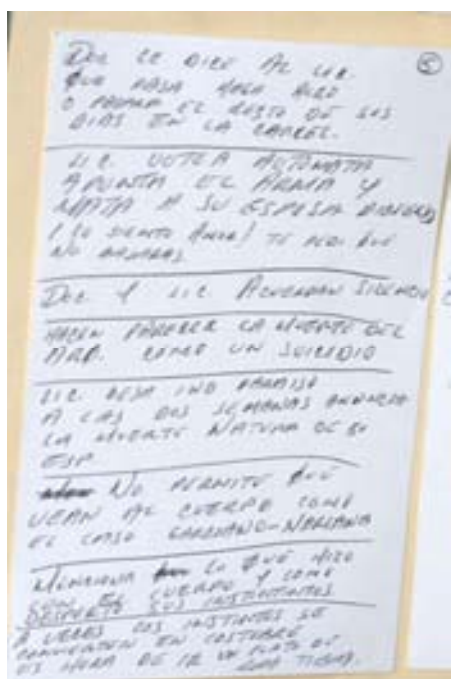 5
DOC LE DICE AL LIC.
QUE PASA HAGA ALGO
O PASARA EL RESTO DE SUS
DIAS EN LA CARCEL.
LIC. VOTEA AUTOMATA
APUNTA EL ARMA Y
MATA A SU ESPOSA DICIENDO
¡LO SIENTO AMOR! TE PEDI QUE
NO
DOC Y LIC. ACUERDAN SILENCIO
HACEN PARECER LA MUERTE DEL
COMO UN SUICIDIO
LIC.
A LAS DOS SEMANAS ANUNCIA
LA MUERTE NATURAL DE SU
ESP
NO PERMITE QUE
VEAN AL CUERPO COMO
EL CASO
MENCIONA LO QUE HIZO
CON EL CUERPO Y COMO
DESPERTO SUS INSTINTOS
A VECES LOS INSTINTOS SE
CONVIERTEN EN COSTUMBRE
ES HORA DE IR UN PLATO DE